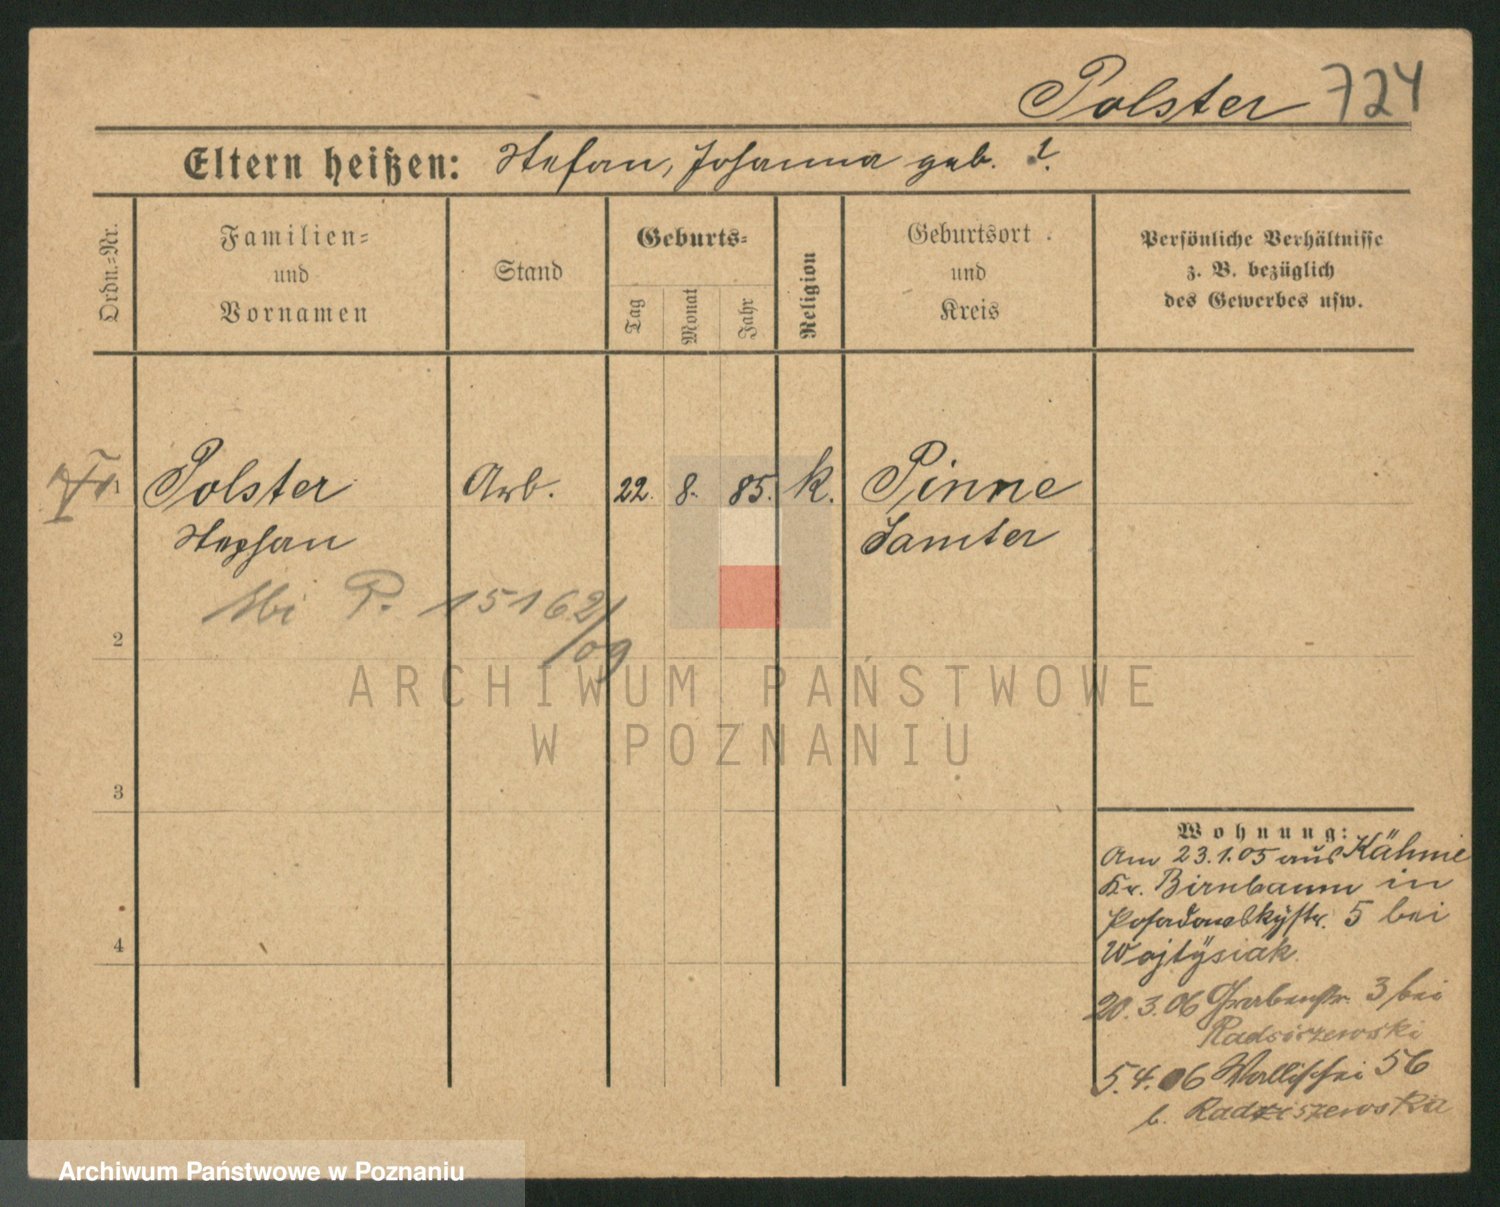 Polster 724
Eltern heißen: Stefan, Johanna geb. ?
Ordn.=Nr.
Familien=
und
Vornamen
Stand
Geburts=
Tag
Monat
Jahr
Religion
Geburtsort
und
Kreis
Persönliche Verhältnisse
z. B. bezüglich
des Gewerbes usw.
Polster Arb. 22. 8. 85. k. Pinne
Stephan Samter
P. 15162/09
2
3
4
Wohnung:
Am 23.1.05 aus Kähme
Kr. Birnbaum in
Posadowskystr. 5 bei
Wojtÿsiak
20.3.06 Grabenstr. 3 bei
Radziszewski
5.4.06 Wallischei 56
b. Radziszewska
ARCHIWUM PAŃSTWOWE
W POZNANIU
Archiwum Państwowe w Poznaniu